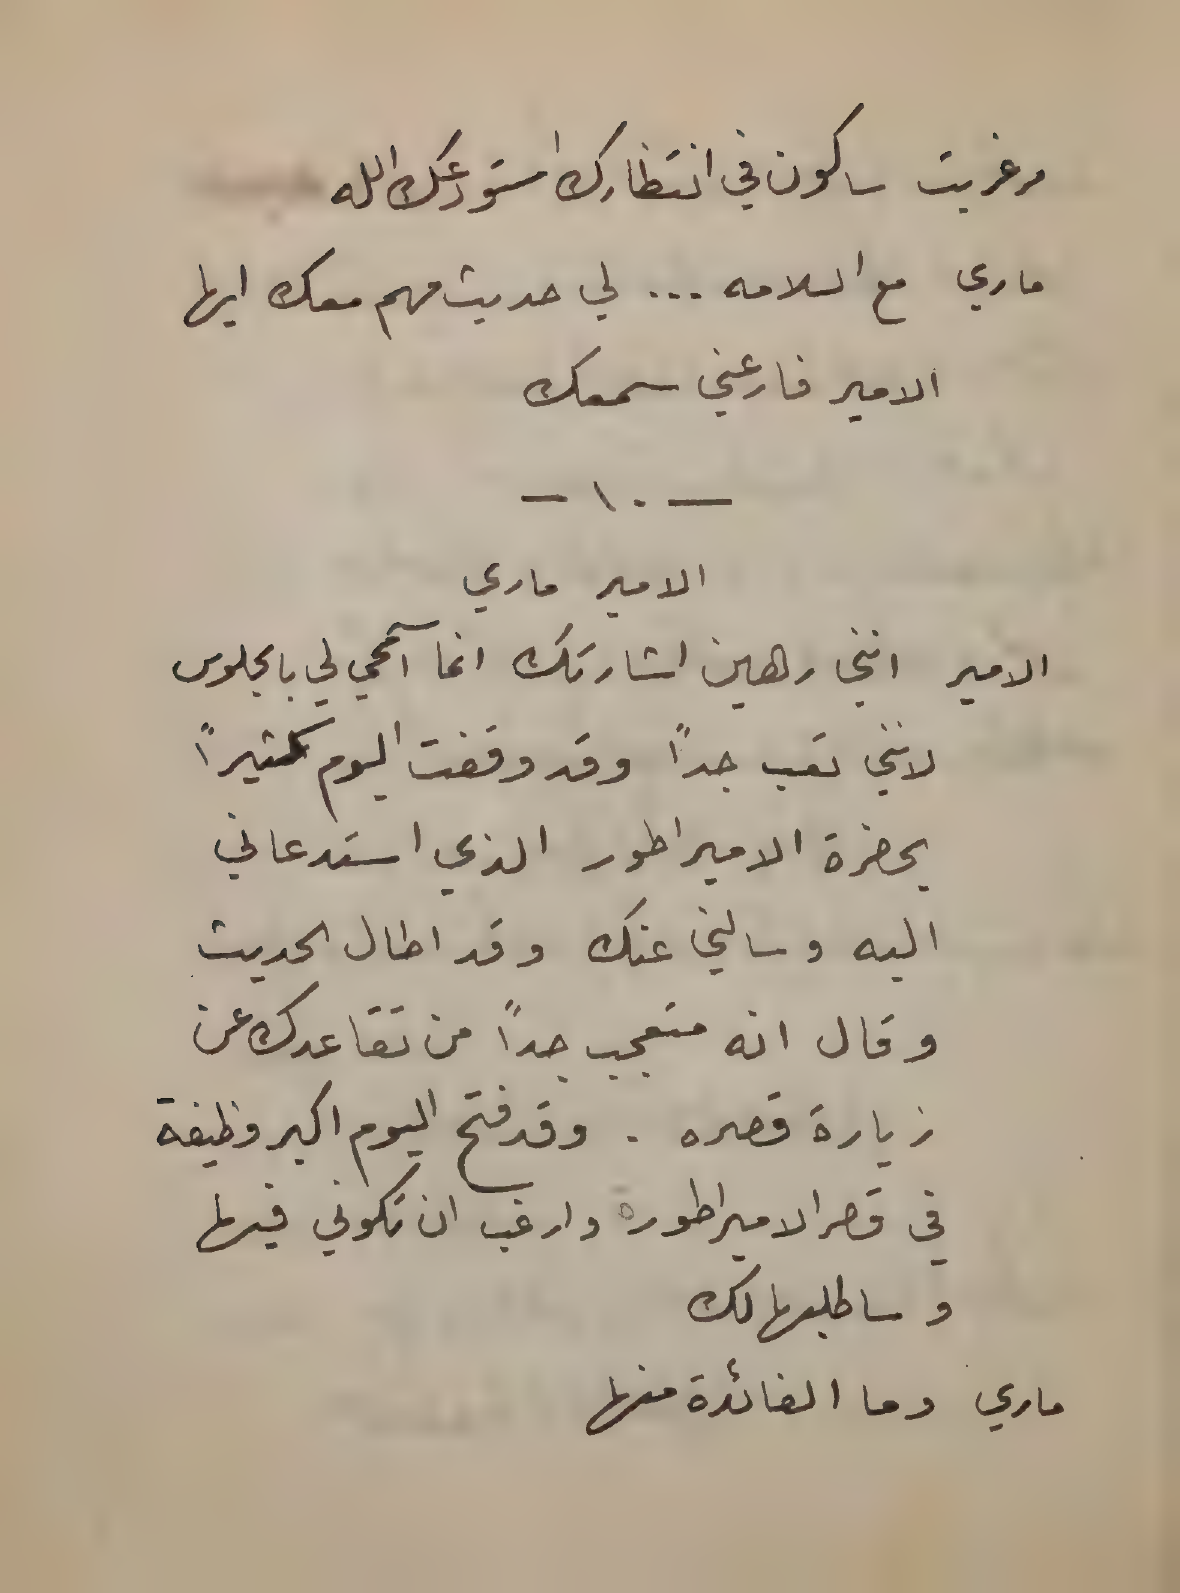 مرغريت ساكون في انتظارك استودعك الله
ماري مع السلامه ... لي حديث مهم معك ايها
الامير فارعني سمعك
— ١٠ —
الامير ماري
الامير انني رهين اشارتك انما اسمحي لي بالجلوس
لانني تعب جداً وقد وقفت اليوم كثيراً
بحضرة الامبراطور الذي استدعاني
اليه وسالني عنك وقد اطال الحديث
وقال انه متعجب جداً من تقاعدك عن
زيارة قصره . وقد فتح اليوم اكبر وظيفة
في قصر الامبراطورة وارغب ان تكوني فيها
وساطلبها لك
ماري وما الفائدة منها